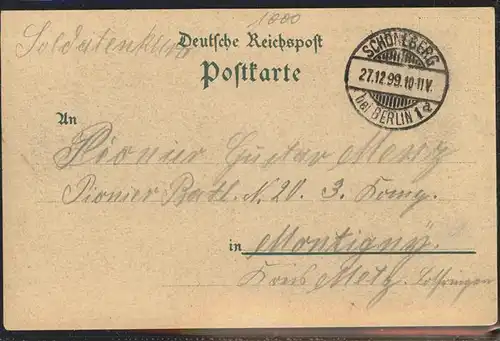 1000
Soldatenkarte
Deutsche Reichspost
Postkarte
SCHÖNEBERG
27.12.99.10-11V.
bei BERLIN 1d
An
Pionier Gustav
Pionier Batl. N. 20. 3. Komp.
in Montigny
Kreis Metz. Lothringen